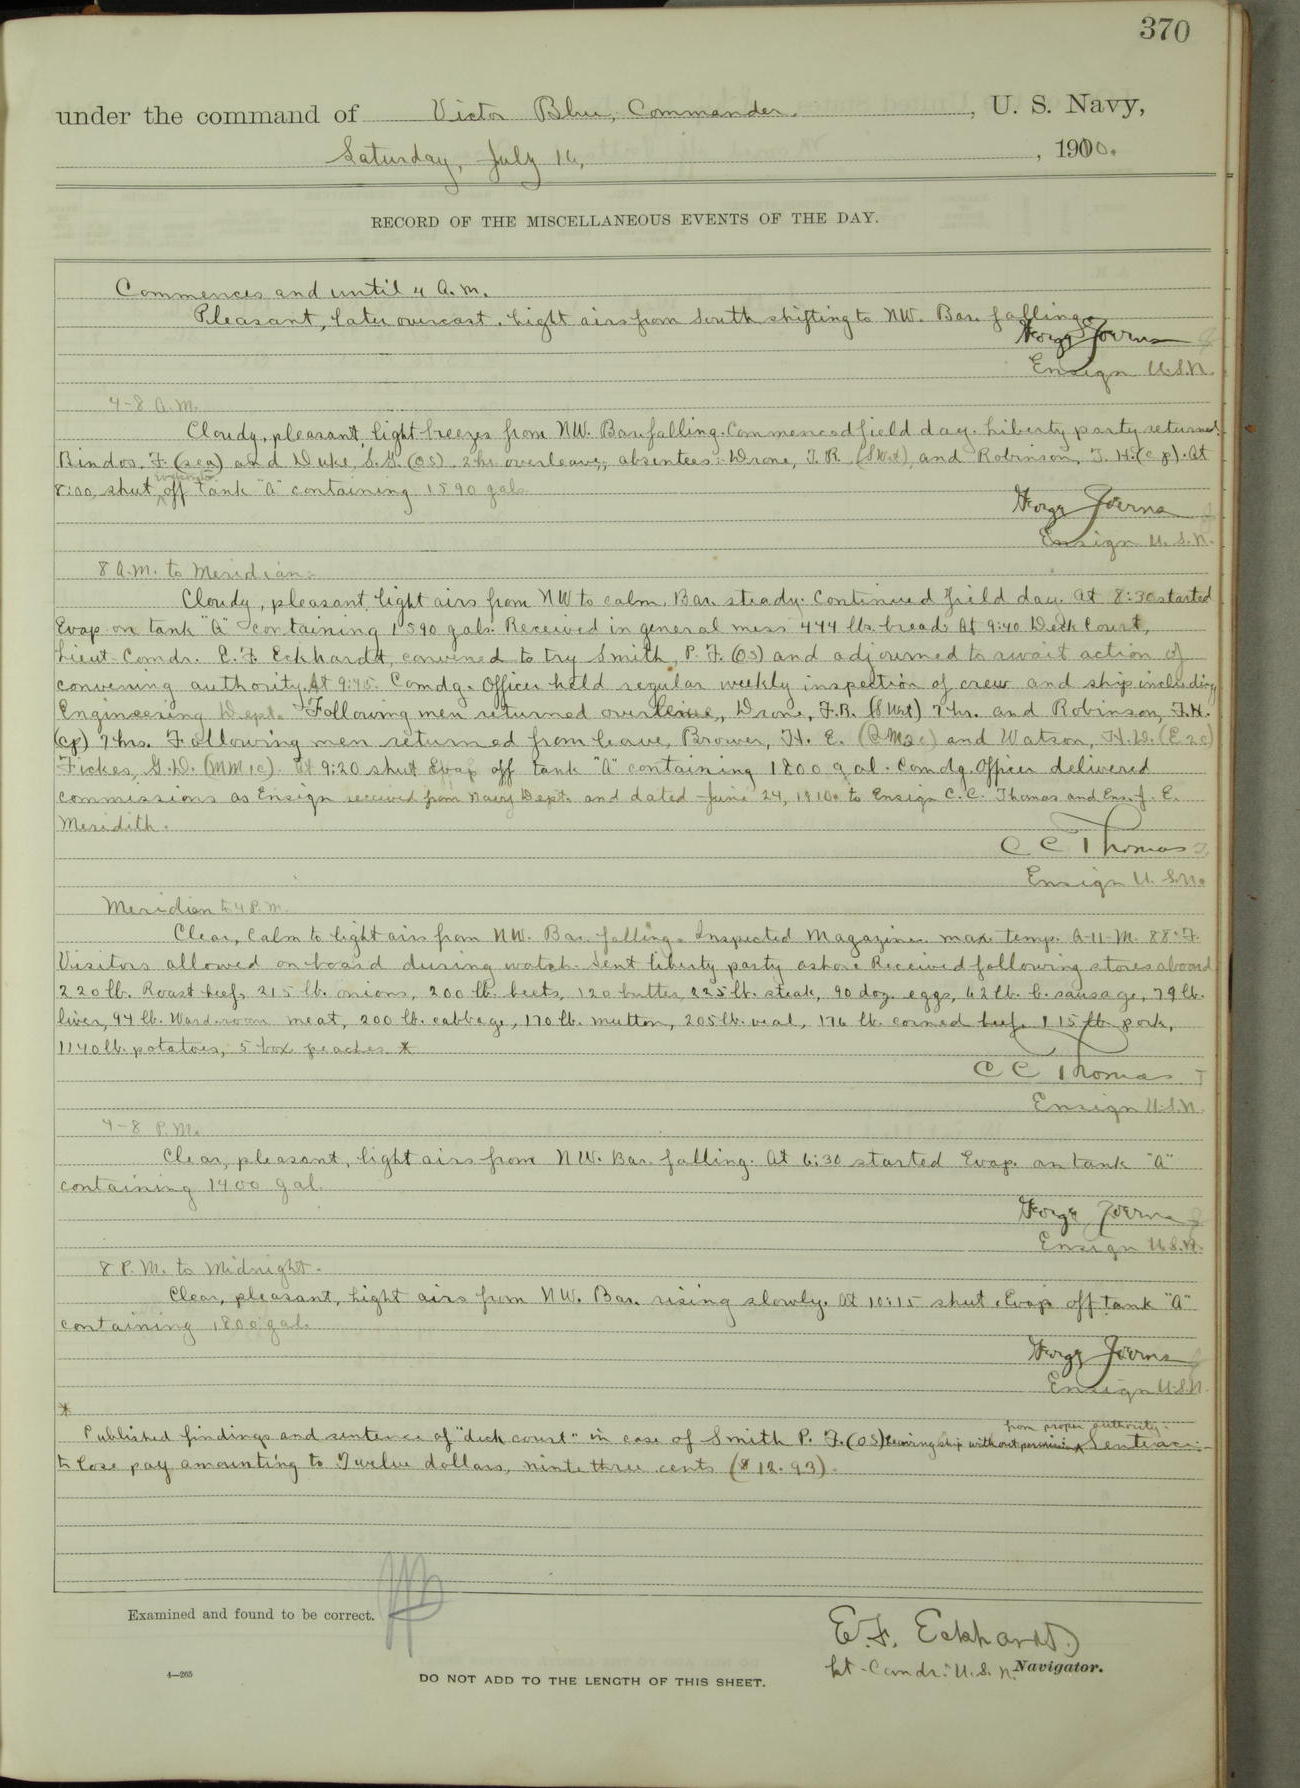 370
under the command of Victor Blue, Commander, U. S. Navy,
Saturday, July 16, 1910.
RECORD OF THE MISCELLANEOUS EVENTS OF THE DAY.
Commences and until 4 A.M.
Pleasant, later overcast. Light airs from South shifting to NW. Bar. falling.
George Joerns
Ensign U.S.N.
4-8 A.M.
Cloudy, pleasant, light breezes from NW. Bar. falling. Commenced field day. Liberty party returned.
Bindos, F. (sea) and Duke, S.G. (OS) 2 hrs overleave; absentees: Drone, F.R. (SWt) and Robinson, F. H. (cp). At
8:00, shut off tank "A" containing 1590 gals.
George Joerns
Ensign U.S.N.
8 A.M. to Meridian:
Cloudy, pleasant, light airs from NW to calm. Bar. steady. Continued field day. At 8:30 started
Evap. on tank "A" containing 1590 gals. Received in general mess 444 lbs. bread. At 9:40 Deck Court,
Lieut. Comdr. E. F. Eckhardt, convened to try Smith, P. F. (OS) and adjourned to await action of
convening authority. At 9:45 Comdg. Officer held regular weekly inspection of crew and ship including
Engineering Dept. Following men returned overleave, Drone, F.R. (SWt) 7 hr. and Robinson, F.H.
(cp) 7 hrs. Following men returned from leave, Brower, H. E. (BM2c) and Watson, H.W. (E2c)
Fickes, G.D. (MM1c). At 9:20 shut Evap off tank "A" containing 1800 gal. Comdg. Officer delivered
commissions as Ensign received from Navy Dept. and dated June 24, 1910 to Ensign C.C. Thomas and Ens. J. E.
Meridith.
C C Thomas
Ensign U. S.N.
Meridian to 4 P.M.
Clear, Calm to light airs from NW. Bar. falling. Inspected Magazines max. temp. A-11-M. 88° F.
Visitors allowed on board during watch. Sent liberty party ashore. Received following stores aboard
220 lb. Roast beef, 215 lb. onions, 200 lb. beets, 120 butter, 225 lb. steak, 90 doz. eggs, 62 lb. b. sausage, 79 lb.
liver, 94 lb. Wardroom meat, 200 lb. cabbage, 170 lb. mutton, 205 lb. veal, 176 lb. corned beef, 115 lb. pork,
1140 lb. potatoes, 5 box peaches *
C C Thomas
Ensign U.S.N.
4-8 P.M.
Clear, pleasant, light airs from NW. Bar. falling. At 6:30 started Evap. on tank "A"
containing 1400 gal.
George Joerns
Ensign U.S.N.
8 P.M. to Midnight.
Clear, pleasant, Light airs from NW. Bar. rising slowly. At 10:15 shut Evap off tank "A"
containing 1800 gal.
George Joerns
Ensign U.S.N.
*
from proper authority.
Published findings and sentence of "deck court" in case of Smith P. F. (OS) leaving ship without permission Sentence:-
to lose pay amounting to Twelve dollars, ninte three cents ($12.93).
Examined and found to be correct.
E. F. Eckhardt
Lt-Comdr. U.S.N. Navigator.
4—265
DO NOT ADD TO THE LENGTH OF THIS SHEET.